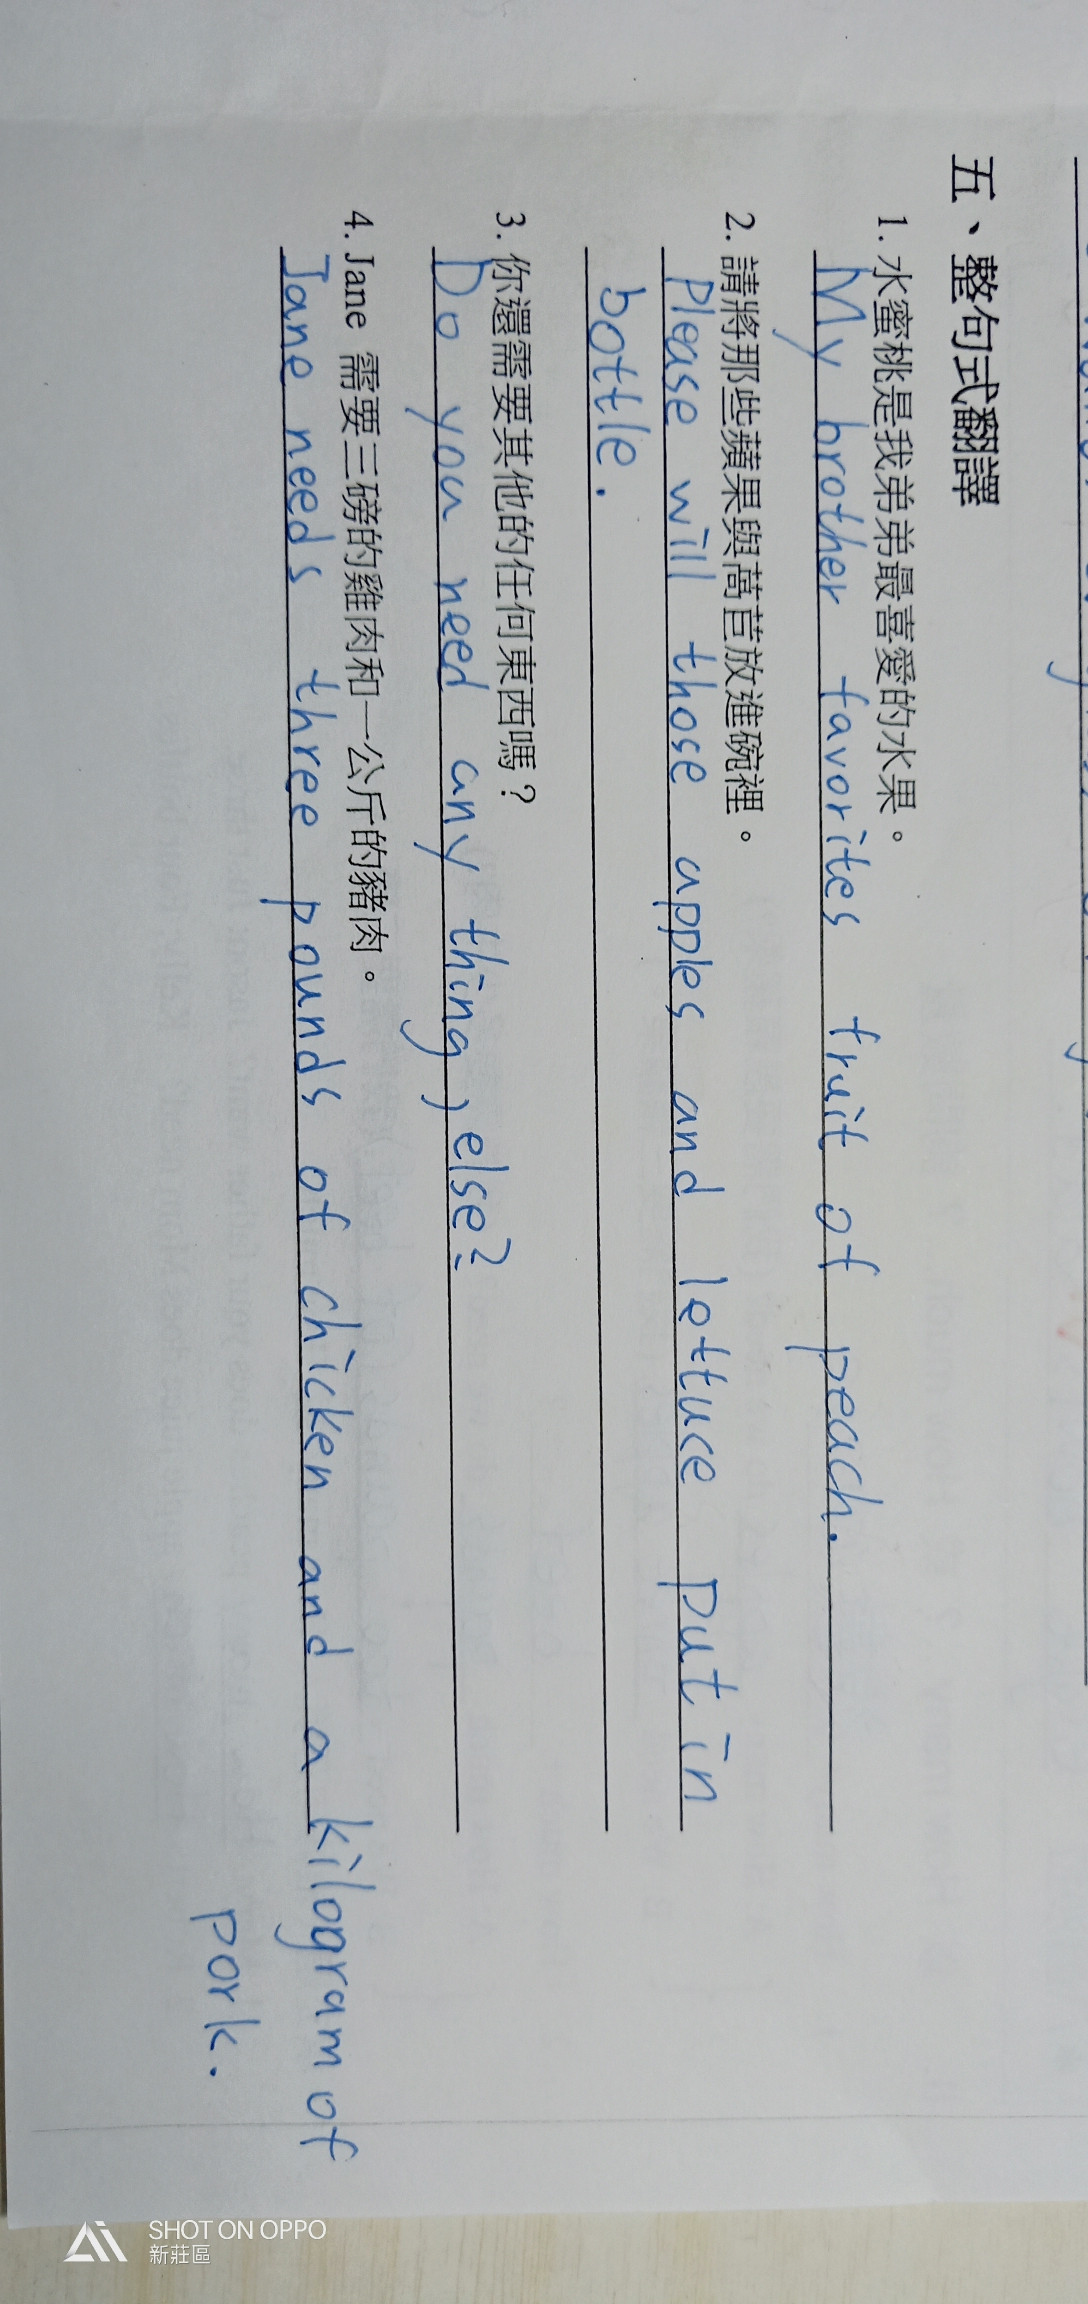 五、整句式翻譯
1. 水蜜桃是我弟弟最喜愛的水果。
My brother favorites fruit of peach.
2. 請將那些蘋果與萵苣放進碗裡。
Please will those apples and lettuce put in
bottle.
3. 你還需要其他的任何東西嗎？
Do you need any thing, else?
4. Jane 需要三磅的雞肉和一公斤的豬肉。
Jane needs three pounds of chicken and a kilogram of
pork.
SHOT ON OPPO
新莊區